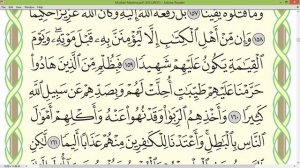 Mushaf Madina.pdf (SECURED) - Adobe Reader
وَمَا قَتَلُوهُ يَقِينًۢا ١٥٧ بَل رَّفَعَهُ ٱللَّهُ إِلَيْهِ وَكَانَ ٱللَّهُ عَزِيزًا حَكِيمًا
١٥٨ وَإِن مِّنْ أَهْلِ ٱلْكِتَٰبِ إِلَّا لَيُؤْمِنَنَّ بِهِۦ قَبْلَ مَوْتِهِۦ وَيَوْمَ
ٱلْقِيَٰمَةِ يَكُونُ عَلَيْهِمْ شَهِيدًا ١٥٩ فَبِظُلْمٍ مِّنَ ٱلَّذِينَ هَادُوا۟
حَرَّمْنَا عَلَيْهِمْ طَيِّبَٰتٍ أُحِلَّتْ لَهُمْ وَبِصَدِّهِمْ عَن سَبِيلِ ٱللَّهِ
كَثِيرًا ١٦٠ وَأَخْذِهِمُ ٱلرِّبَوٰا۟ وَقَدْ نُهُوا۟ عَنْهُ وَأَكْلِهِمْ أَمْوَٰلَ
ٱلنَّاسِ بِٱلْبَٰطِلِ وَأَعْتَدْنَا لِلْكَٰفِرِينَ مِنْهُمْ عَذَابًا أَلِيمًا ١٦١